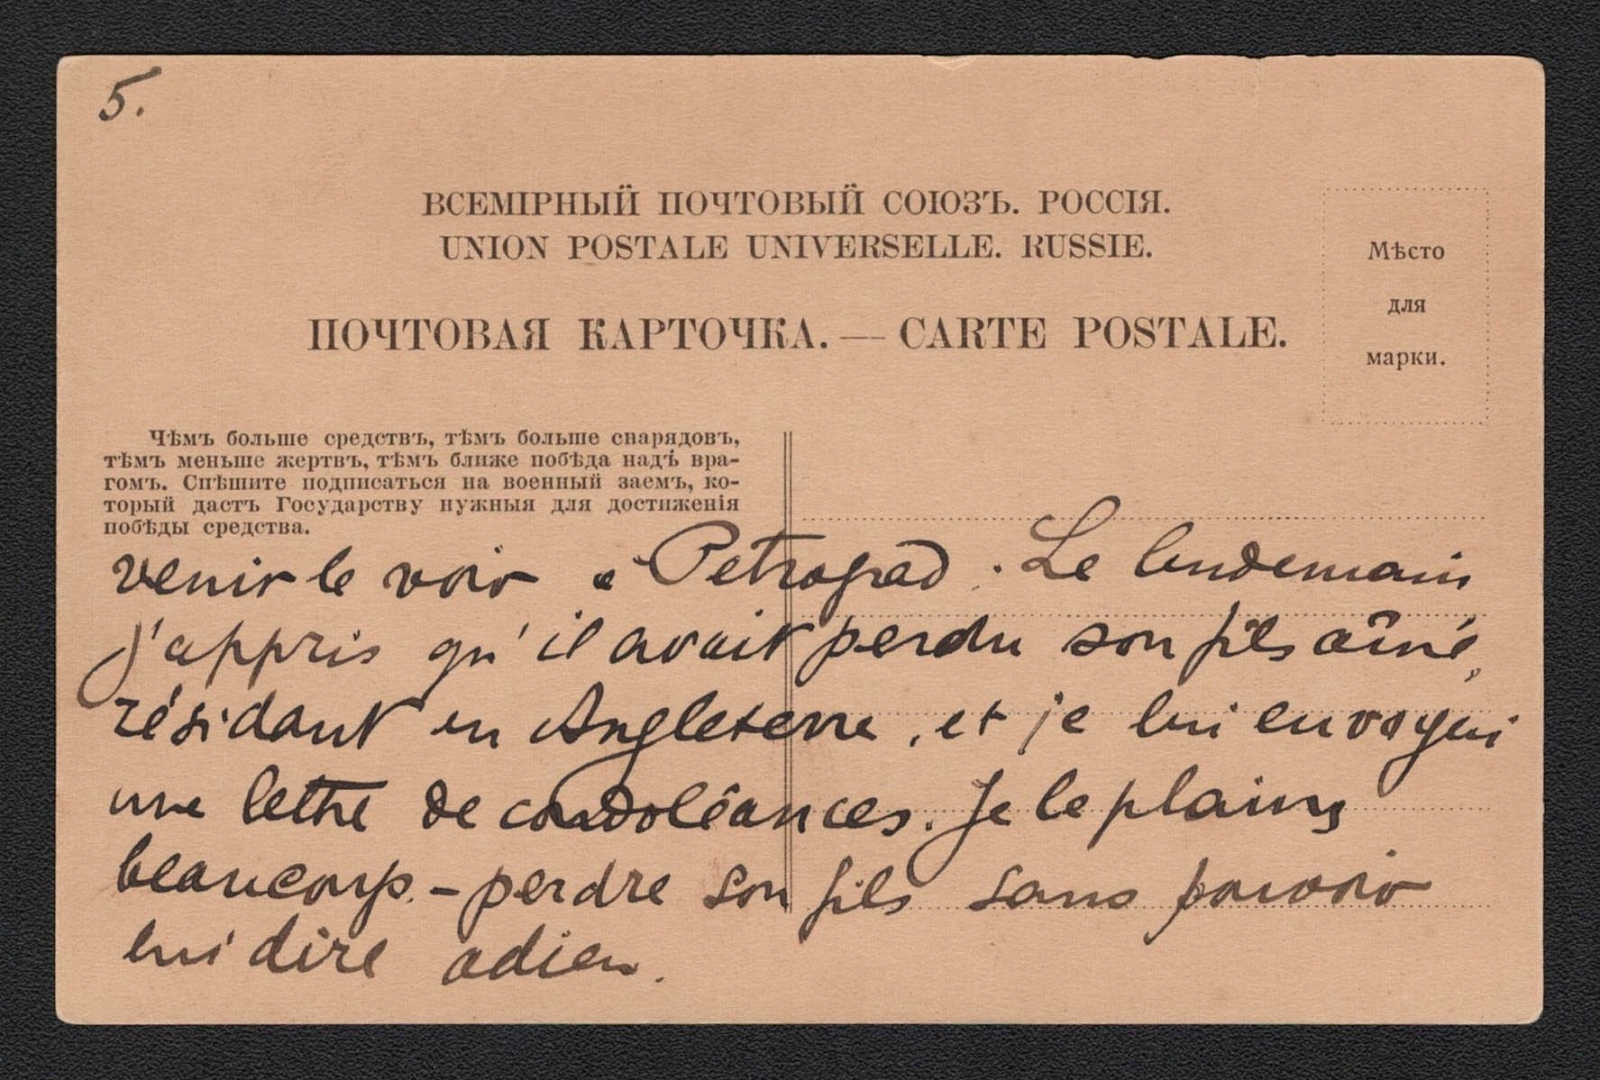 5.
ВСЕМІРНЫЙ ПОЧТОВЫЙ СОЮЗЪ. РОССІЯ.
UNION POSTALE UNIVERSELLE. RUSSIE.
Мѣсто
для
марки.
ПОЧТОВАЯ КАРТОЧКА. — CARTE POSTALE.
Чѣмъ больше средствъ, тѣмъ больше снарядовъ,
тѣмъ меньше жертвъ, тѣмъ ближе побѣда надъ вра-
гомъ. Спѣшите подписаться на военный заемъ, ко-
торый дастъ Государству нужныя для достиженія
побѣды средства.
venir le voir à Petrograd. Le lendemain
j'appris qu'il avait perdu son fils aîné,
résidant en Angleterre, et je lui envoyai
une lettre de condoléances. Je le plains
beaucoup. - perdre son fils sans pouvoir
lui dire adieu.